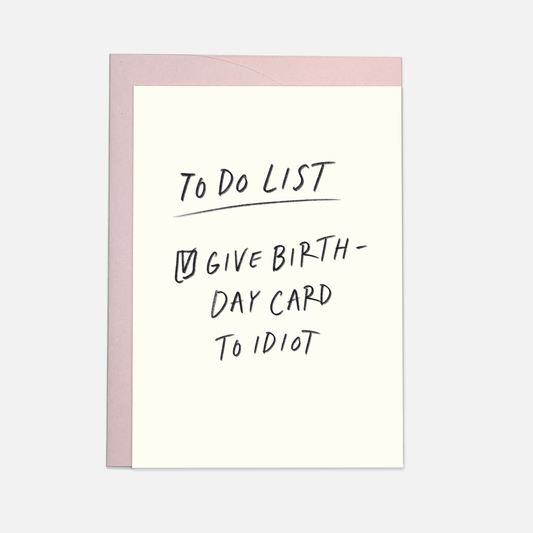 TO DO LIST
GIVE BIRTH-
DAY CARD
TO IDIOT